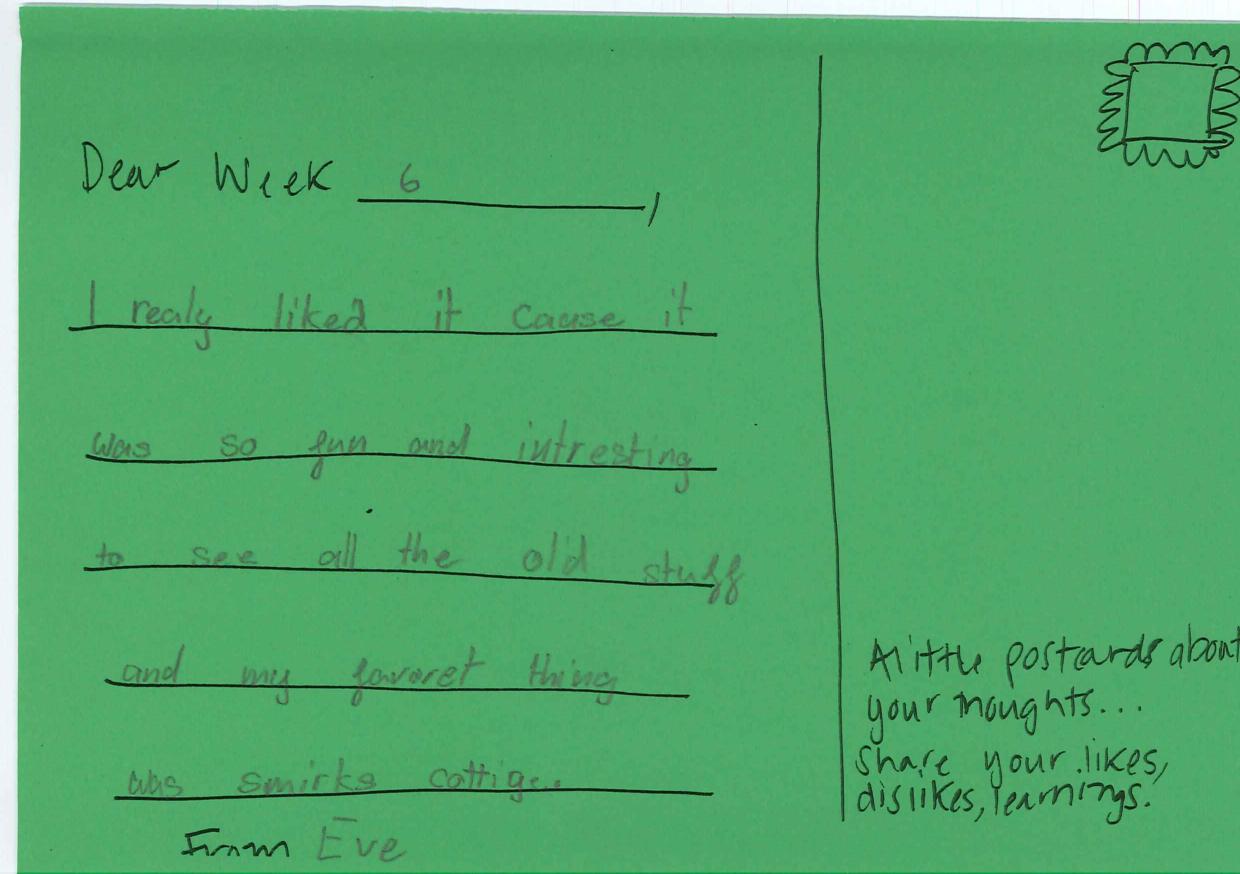 Dear Week 6,
I realy liked it cause it
was so fun and intresting
to see all the old stuff
and my favoret thing
was smirks cottige..
From Eve
A little postcards about
your thoughts...
share your likes,
dislikes, learnings.